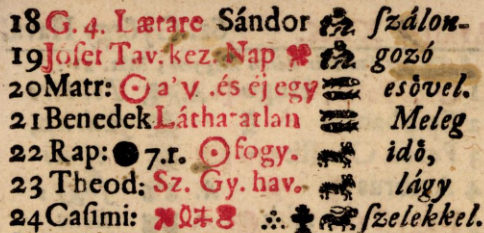 18 G. 4. Lætare Sándor ſzálon-
19 Joſef Tav. kez. Nap gozó
20 Matr: ☉ a' v .és éj egy esővel.
21 Benedek Láthatatlan Meleg
22 Rap: ● 7.r. ☉ fogy. idő,
23 Theod: Sz. Gy. hav. lágy
24 Caſimi: ſzelekkel.